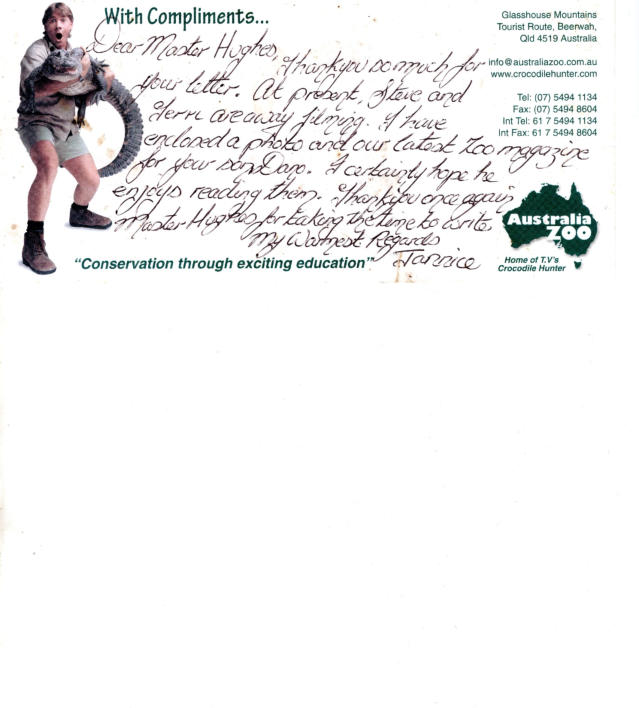 With Compliments...
Dear Master Hughes,
Thankyou so much for
your letter. At present, Steve and
Terri are away filming. I have
enclosed a photo and our latest Zoo magazine
for your son. I certainly hope he
enjoys reading them. Thankyou once again
Master Hughes for taking the time to write.
My Warmest Regards
Jannice
"Conservation through exciting education"
Glasshouse Mountains
Tourist Route, Beerwah,
Qld 4519 Australia
info@australiazoo.com.au
www.crocodilehunter.com
Tel: (07) 5494 1134
Fax: (07) 5494 8604
Int Tel: 61 7 5494 1134
Int Fax: 61 7 5494 8604
Australia
ZOO
Home of T.V's
Crocodile Hunter